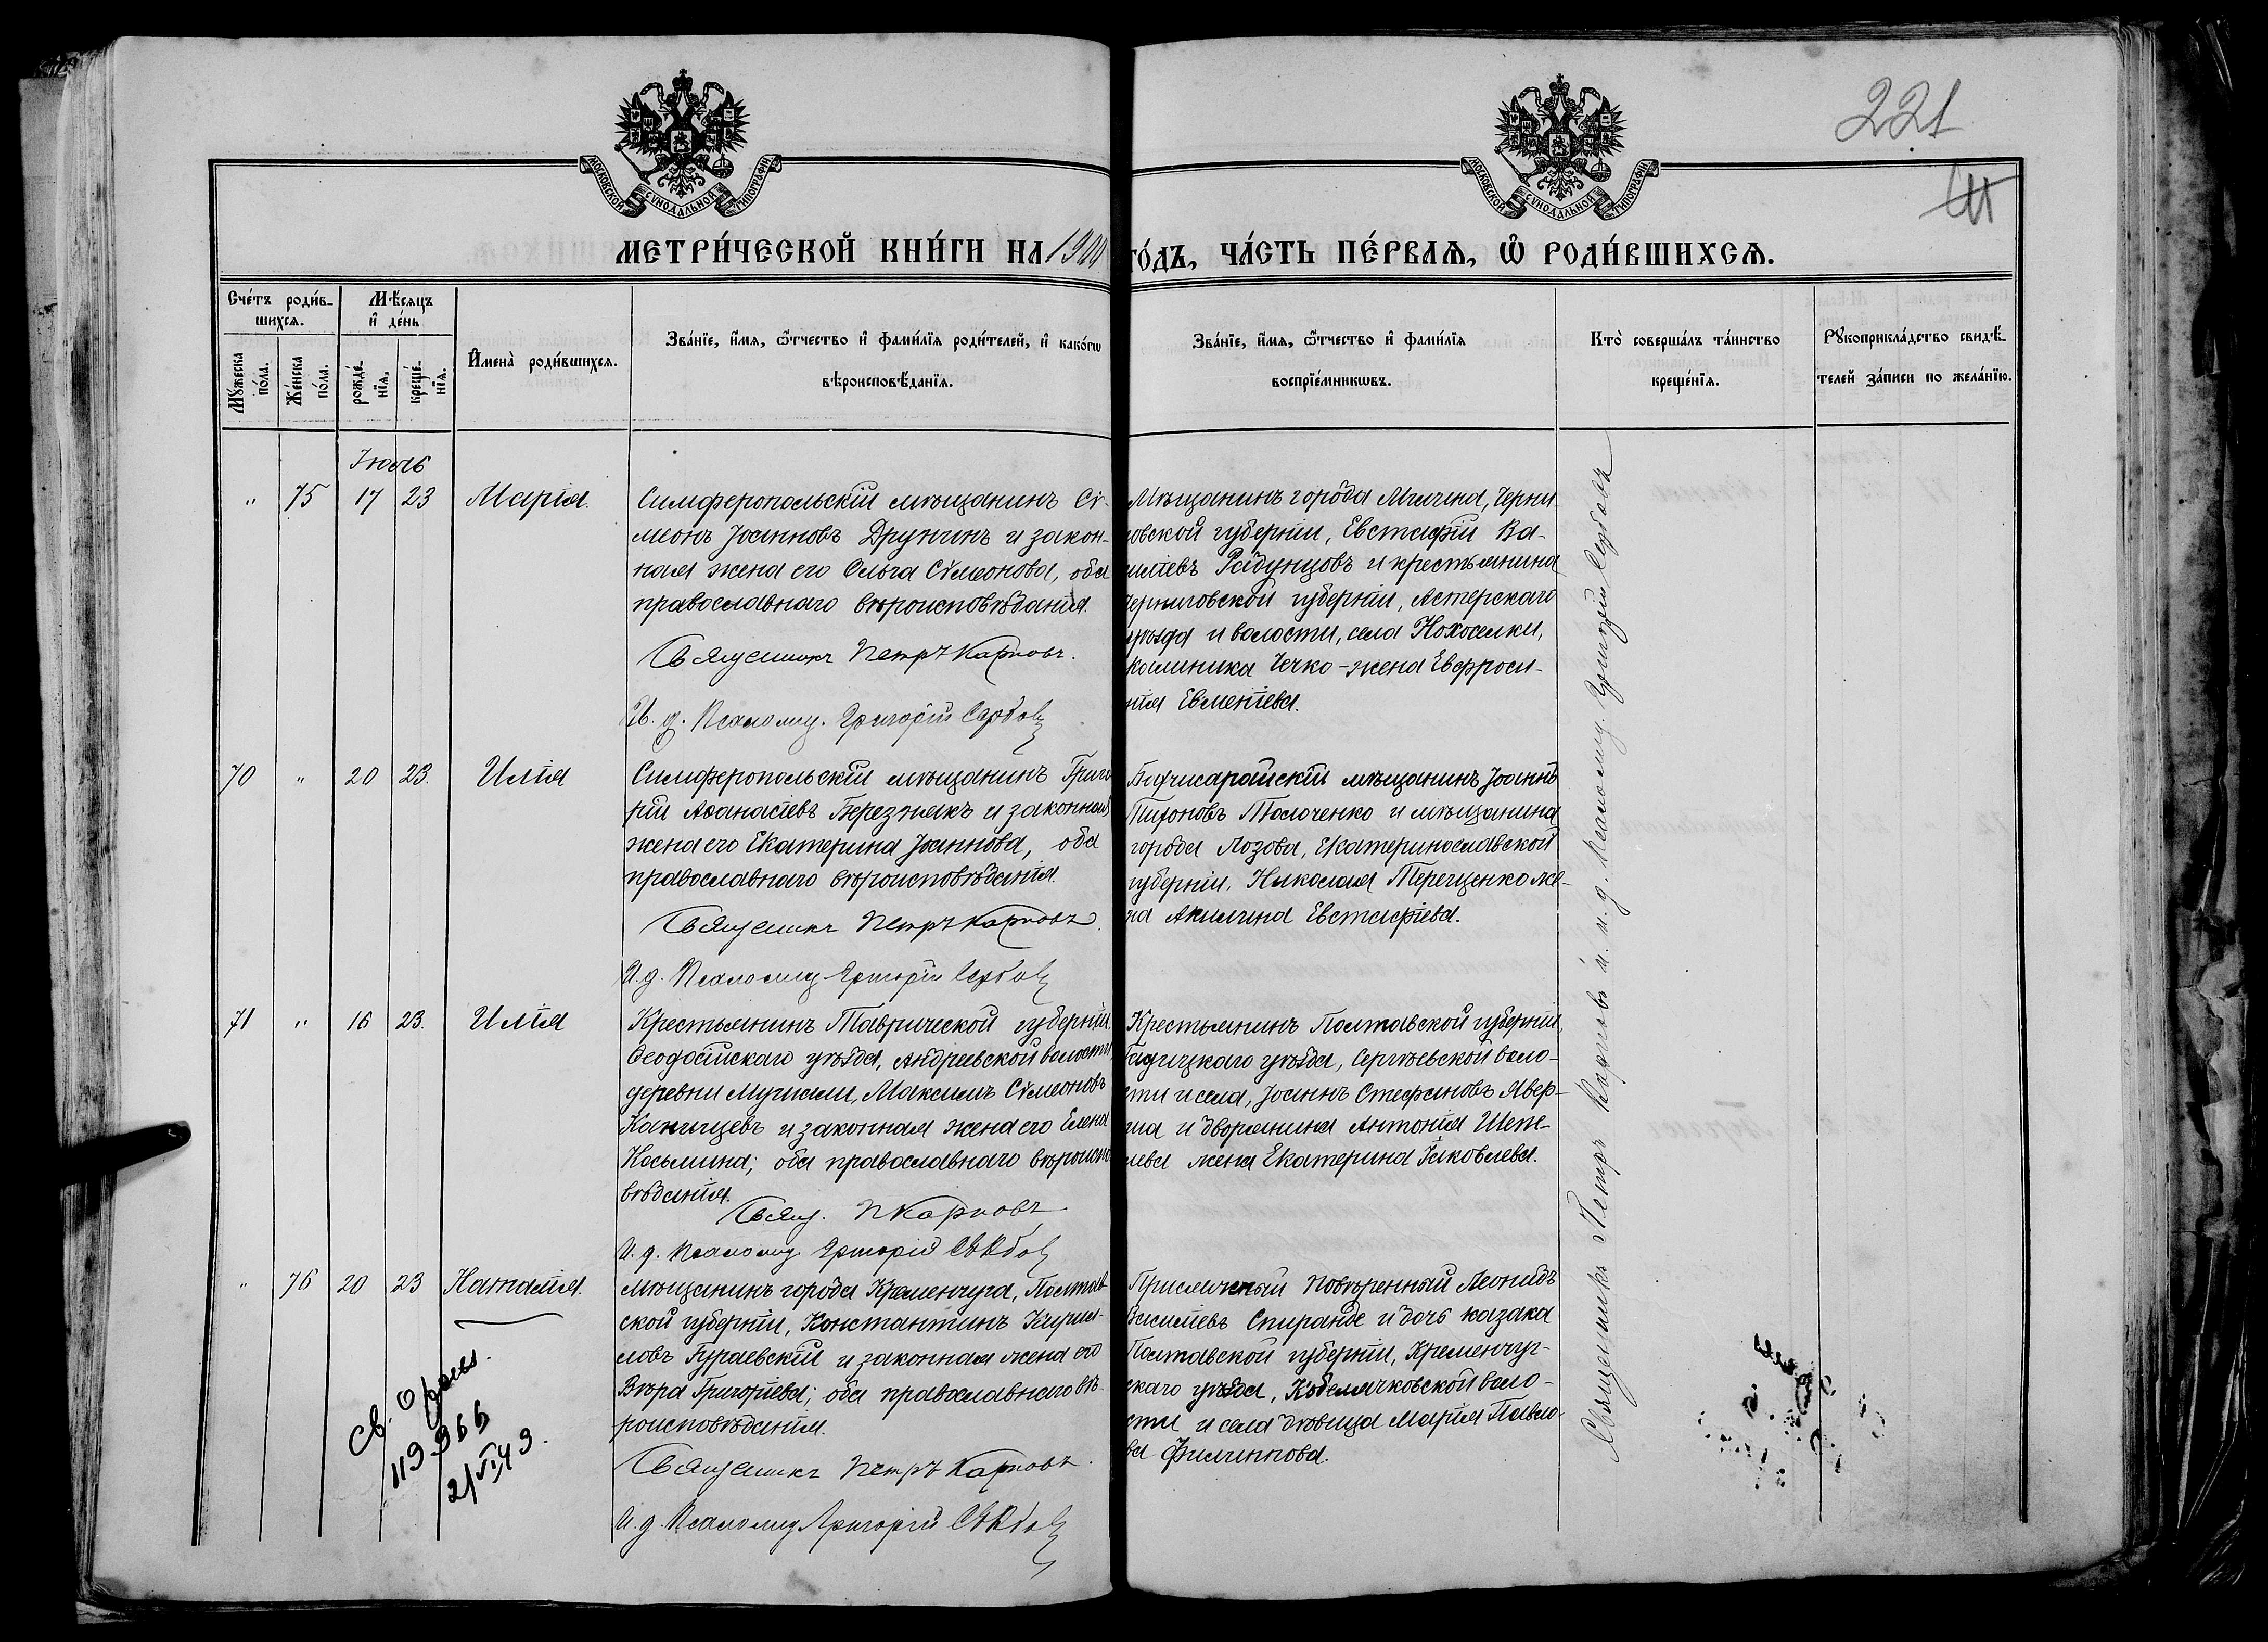 221
МОСКОВСКОЙ СУНОДАЛЬНОЙ ТИПОГРАФІИ
МОСКОВСКОЙ СУНОДАЛЬНОЙ ТИПОГРАФІИ
МЕТРИ́ЧЕСКОЙ КНИ́ГИ НА 1900 ГО́ДЪ, ЧА́СТЬ ПЕ́РВАѦ, Ѽ РОДИ́ВШИХСѦ.
Сче́тъ роди́в-
шихсѧ.
Мꙋ́жеска по́ла.
Же́нска по́ла.
Мѣ́сяцъ и҆ де́нь
рожде́нїѧ.
креще́нїѧ.
И҆мена̀ роди́вшихсѧ.
Зва́нїе, и҆́мѧ, ѻ҆́тчество и҆ фами́лїѧ роди́телей, и҆ како́гѡ
вѣроисповѣ́данїѧ.
Зва́нїе, и҆́мѧ, ѻ҆́тчество и҆ фами́лїѧ
воспрїе́мникѡвъ.
Кто̀ соверша́лъ та́инство
креще́нїѧ.
Рꙋкоприкла́дство свидѣ́-
телей за́писи по жела́нїю.
Іюль
" 75 17 23 Марія.
Симферопольскій мѣщанинъ Сѵ-
меонъ Іоанновъ Дружинъ и закон-
ная жена его Ольга Сѵмеонова, оба
православнаго вѣроисповѣданія.
Священникъ Петръ Карповъ.
И. д. Псаломщ. Григорій Сербовъ
Мѣщанинъ города Мглина, Черни-
говской губерніи, Евстафій Ва-
силіевъ Радунцовъ и крестьянина
Черниговской губерніи, Астерскаго
уѣзда и волости, села Новоселки,
Каллиника Чечко - жена Евфроси-
нія Евменіева.
70 " 20 23. Илія
Симферопольскій мѣщанинъ Григо-
рій Аѳанасіевъ Березнякъ и законная
жена его Екатерина Іоаннова, оба
православнаго вѣроисповѣданія.
Священникъ Петръ Карповъ.
И. д. Псаломщ. Григорій Сербовъ
Бахчисарайскій мѣщанинъ Іоаннъ
Тихоновъ Толоченко и мѣщанина
города Лозова, Екатеринославской
губерніи, Николая Терещенко же-
на Акилина Евстафіева.
71 " 16 23. Илія
Крестьянинъ Таврической губерніи,
Ѳеодосійскаго уѣзда, Андреевской волости
деревни Мушали, Максимъ Сѵмеоновъ
и законная жена его Елена
Косьмина; оба православнаго вѣроиспо-
вѣданія.
Свящ. П Карповъ
И. д. Псаломщ. Григорій Сербовъ
Крестьянинъ Полтавской губерніи,
Гадячцкаго уѣзда, Сергѣевской воло-
сти и села, Іоаннъ Стефановъ Явер-
ша и дворянина Антонія Шепе-
лева жена Екатерина Іаковлева.
" 76 20 23 Наталія.
Мѣщанинъ города Кременчуга, Полтав-
ской губерніи, Константинъ Кирил-
ловъ Гураевскій и законная жена его
Вѣра Григоріева; оба православнаго вѣ-
роисповѣданія.
Священникъ Петръ Карповъ.
И. д. Псаломщ Григорій Сербовъ
Присяжный Повѣренный Леонидъ
Василіевъ Спиранде и дочь казака
Полтавской губерніи, Кременчуг-
скаго уѣзда, Кобелячковской воло-
сти и села дѣвица Марія Павло-
ва Филиппова.
Священникъ Петръ Карповъ и. и. д. Псаломщ. Григорій Сербовъ
Св. о рожд.
119966
2/VI 43.